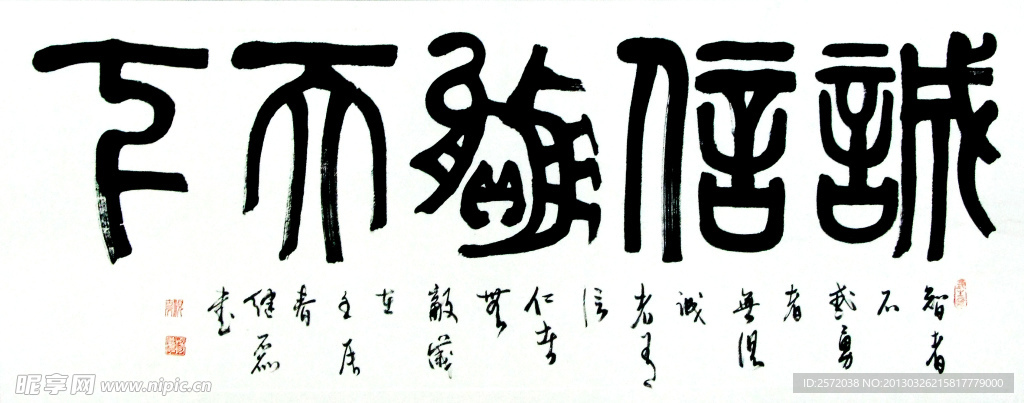 誠信贏天下
智者
不
惑勇
者
無懼
誠
者有
信
仁者
無
敵歲
在
壬辰
春
書
昵享网 www.nipic.cn
ID:2572038 NO:20130326215817779000